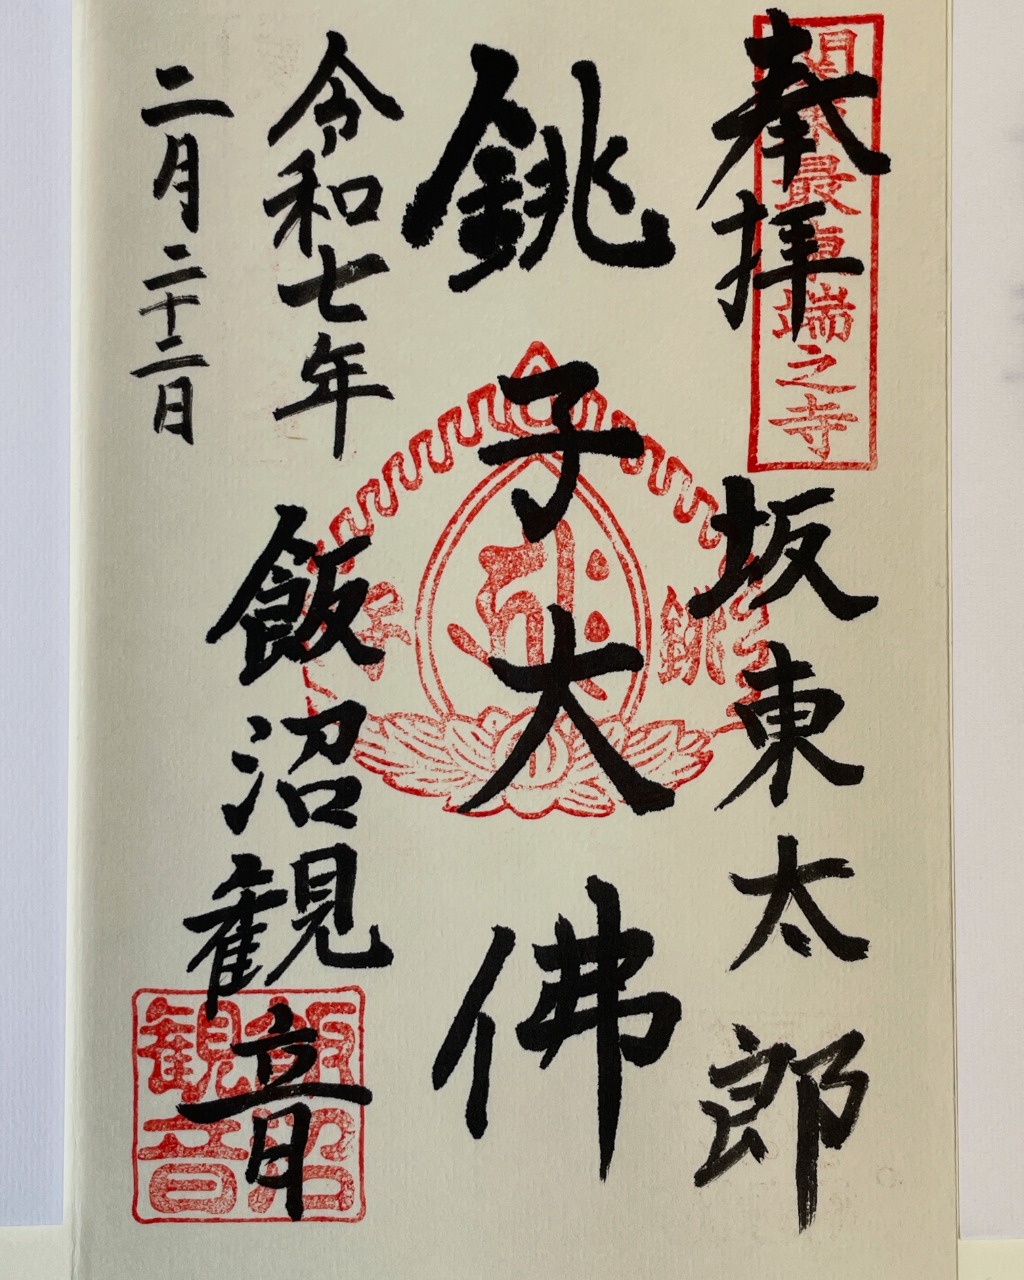 関東最東端之寺
奉拝
坂東太郎
銚子大佛
銚子
令和七年
二月二十二日
飯沼観音
飯沼
観音